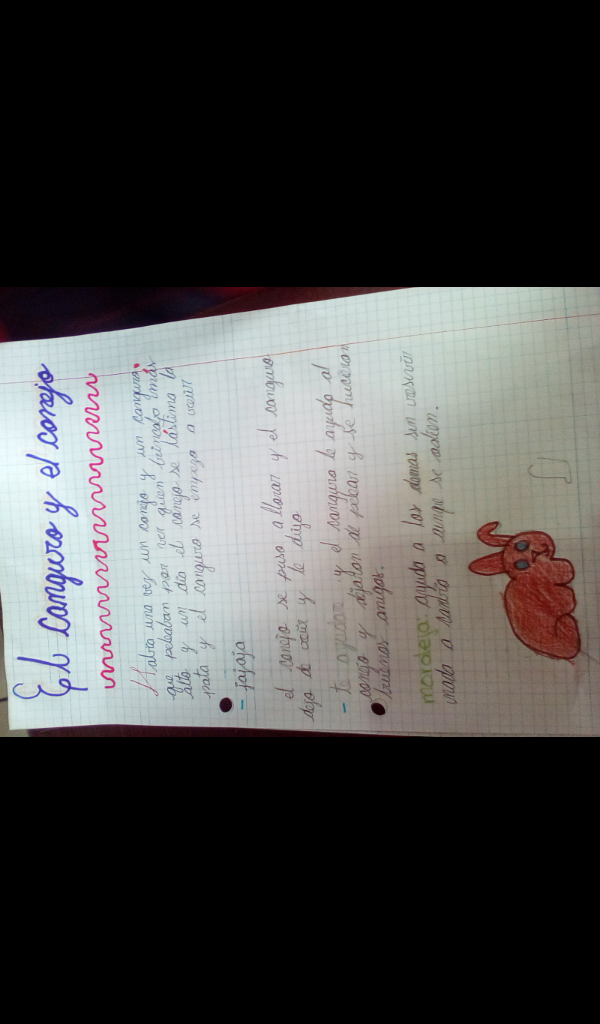 El canguro y el conejo
Habia una vez un conejo y un canguro
que peleaban por ver quien brincaba más
alto y un dia el conejo se lástimo la
pata y el canguro se empezo a reir
- jajaja
el conejo se puso a llorar y el canguro
dejo de reir y le dijo
- te ayudare y el canguro le ayudo al
conejo y dejaron de pelear y se hicieron
buenos amigos.
moraleja: ayuda a los demas sin
nada a cambio a aunque se odien.